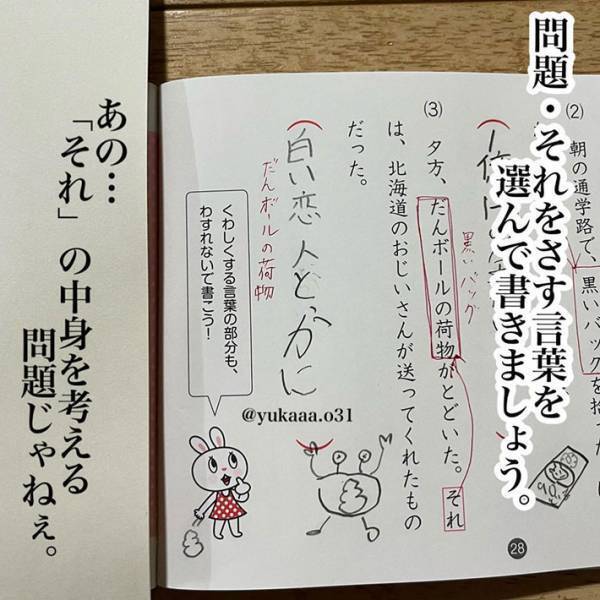 問題・それをさす言葉を
選んで書きましょう。
(2)
朝の通学路で、黒いバッグを
黒いバッグ
(3)
夕方、だんボールの荷物がとどいた。それ
は、北海道のおじいさんが送ってくれたもの
だった。
白い恋人と、かに
だんボールの荷物
くわしくする言葉の部分も、
わすれないで書こう！
@yukaaa.o31
28
あの…
「それ」の中身を考える
問題じゃねぇ。